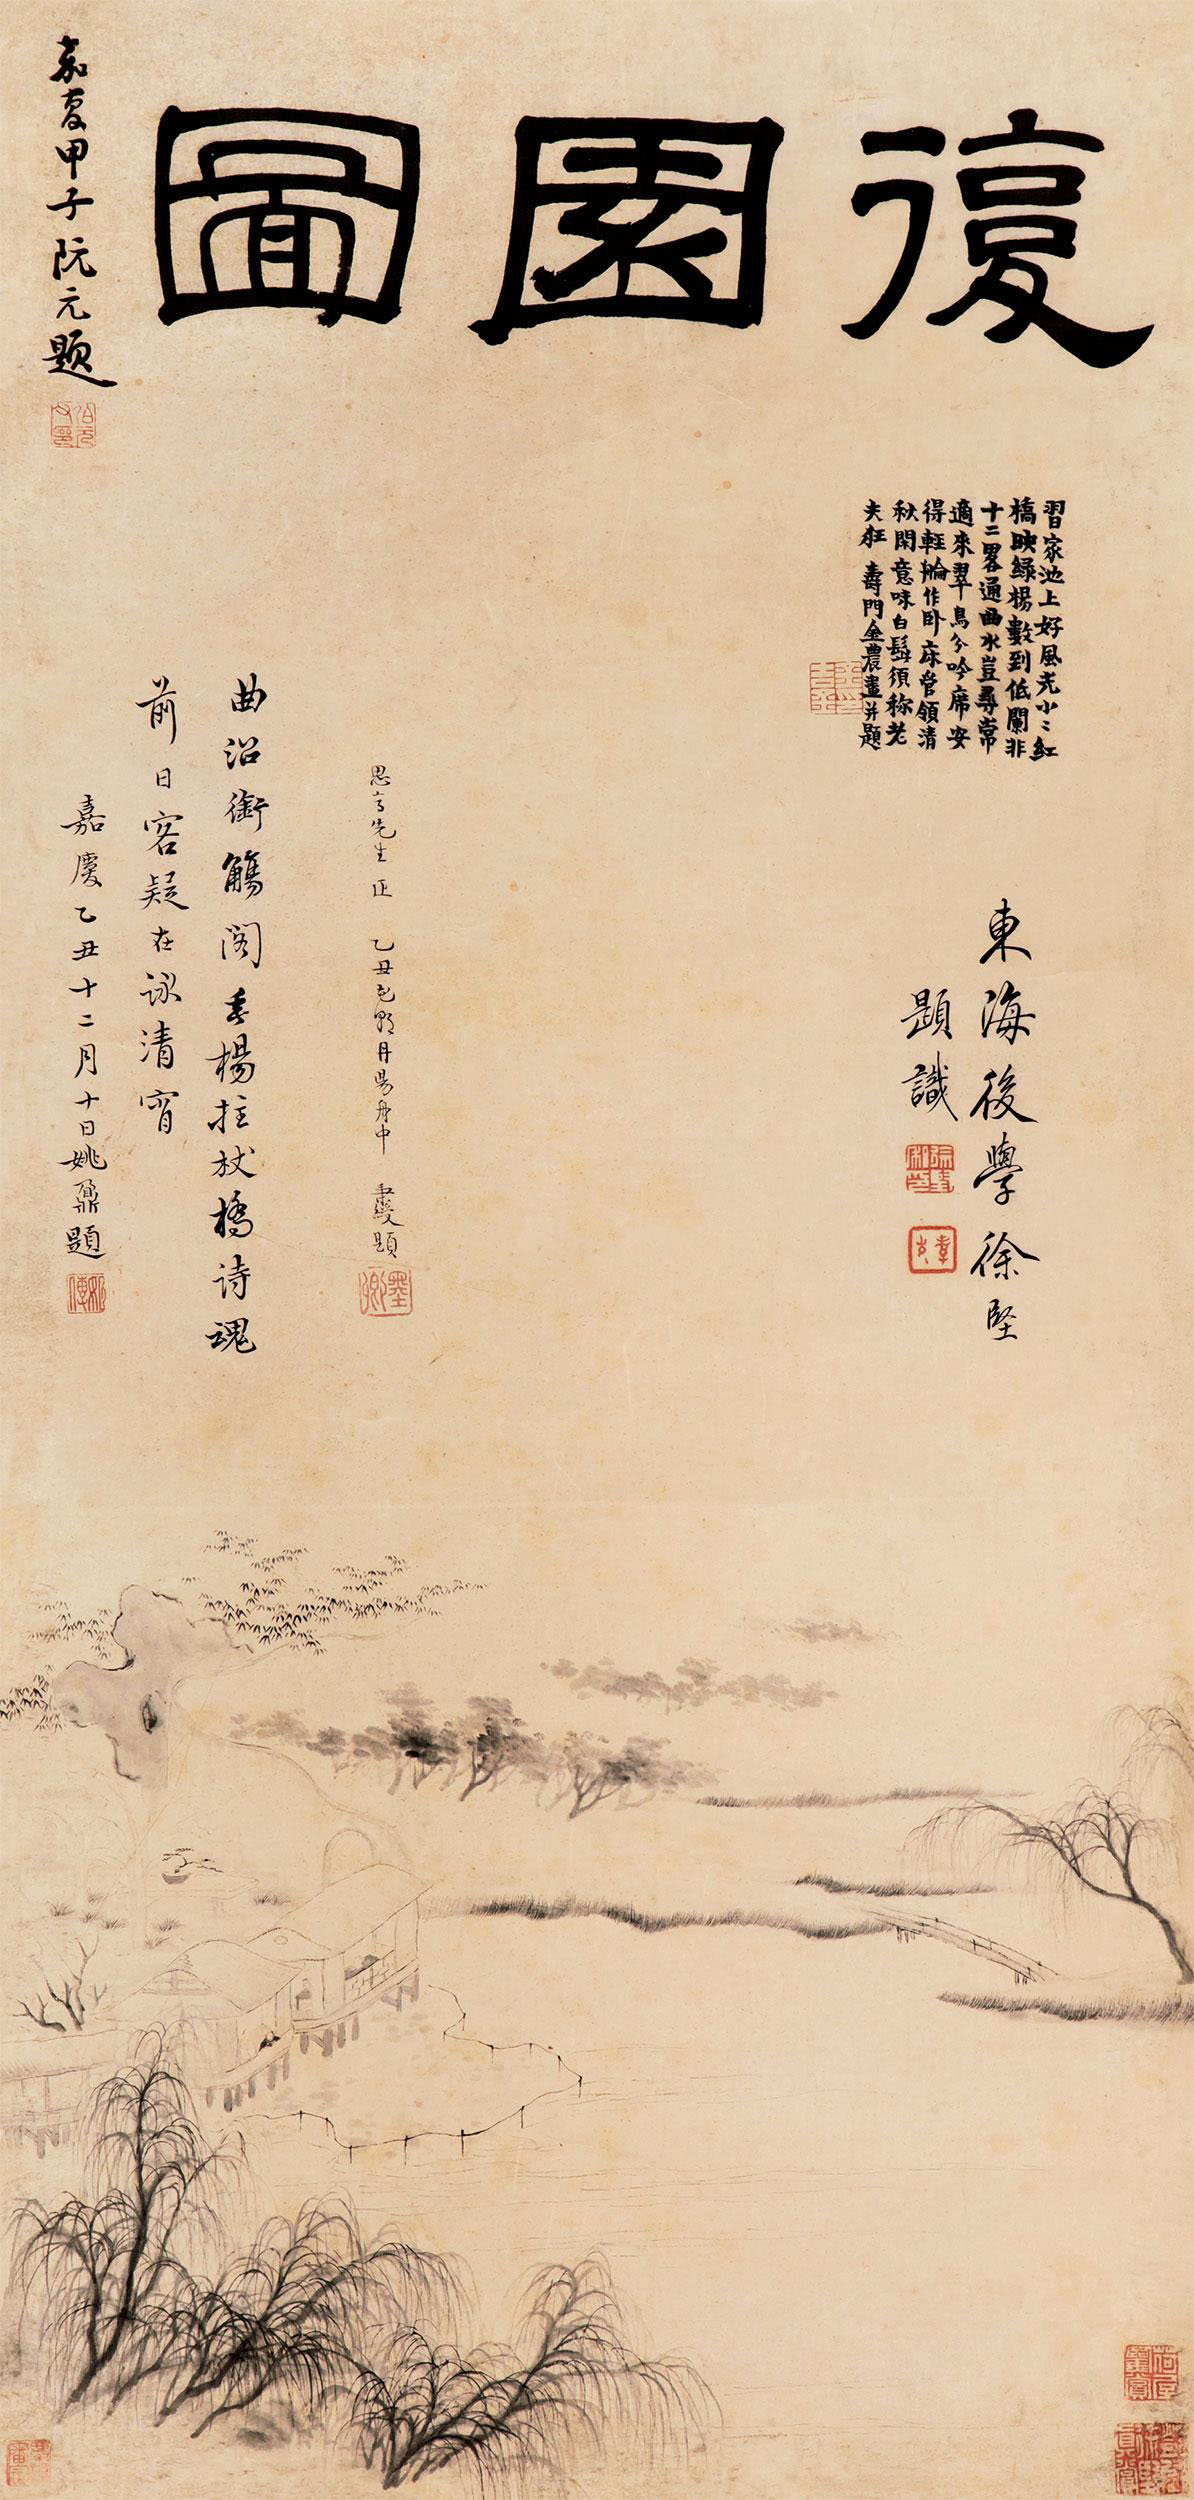 復園圖
嘉慶甲子阮元題
習家池上好風光小〻紅
橋映綠楊數到低闌非
十二畧通曲水豈尋常
適來翠鳥分吟席安
得輕艙作卧床管領清
秋閑意味白髭須称老
夫狂 壽門金農畫并題
東海後學徐堅
題識
思亭先生正 乙丑 丹陽舟中 題
曲沼衝觴閣垂楊拄杖橋詩魂
前日客疑在詠清宵
嘉慶乙丑十二月十日姚鼐題